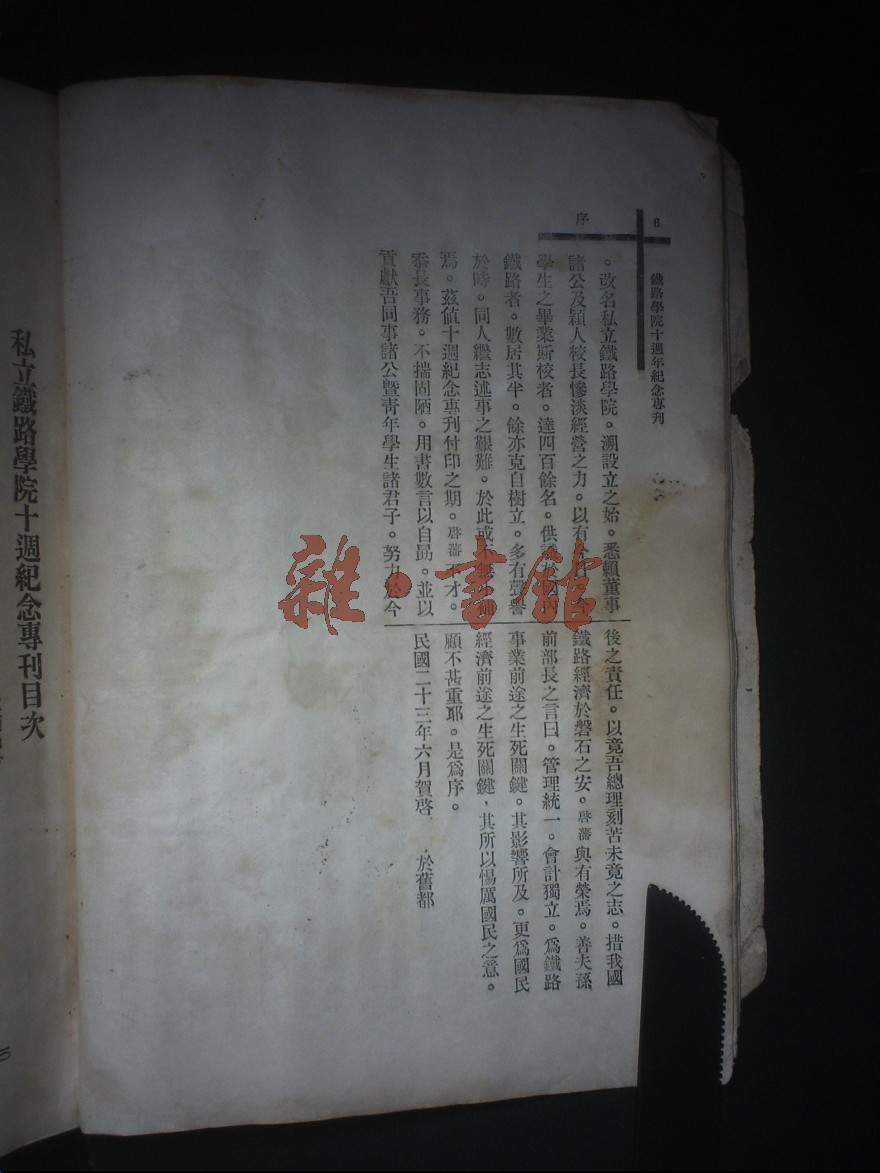 6
鐵路學院十週年紀念專刊
序
。改名私立鐵路學院。溯設立之始。悉賴董事
諸公及穎人校長慘淡經營之力。以有今
學生之畢業斯校者。達四百餘名。供
鐵路者。數居其半。餘亦克自樹立。多有聲譽
於時。同人繼志述事之艱難。於此或不無
焉。茲值十週紀念專刊付印之期。啓藩不才。
忝長事務。不揣固陋。用書數言以自勗。並以
貢獻吾同事諸公暨靑年學生諸君子。努力於今
後之責任。以竟吾總理刻苦未竟之志。措我國
鐵路經濟於磐石之安。啓藩與有榮焉。善夫孫
前部長之言曰。管理統一。會計獨立。爲鐵路
事業前途之生死關鍵。其影響所及。更爲國民
經濟前途之生死關鍵。其所以惕厲國民之意。
顧不甚重耶。是爲序。
民國二十三年六月賀啓 於舊都
私立鐵路學院十週紀念專刊目次
雜·書館